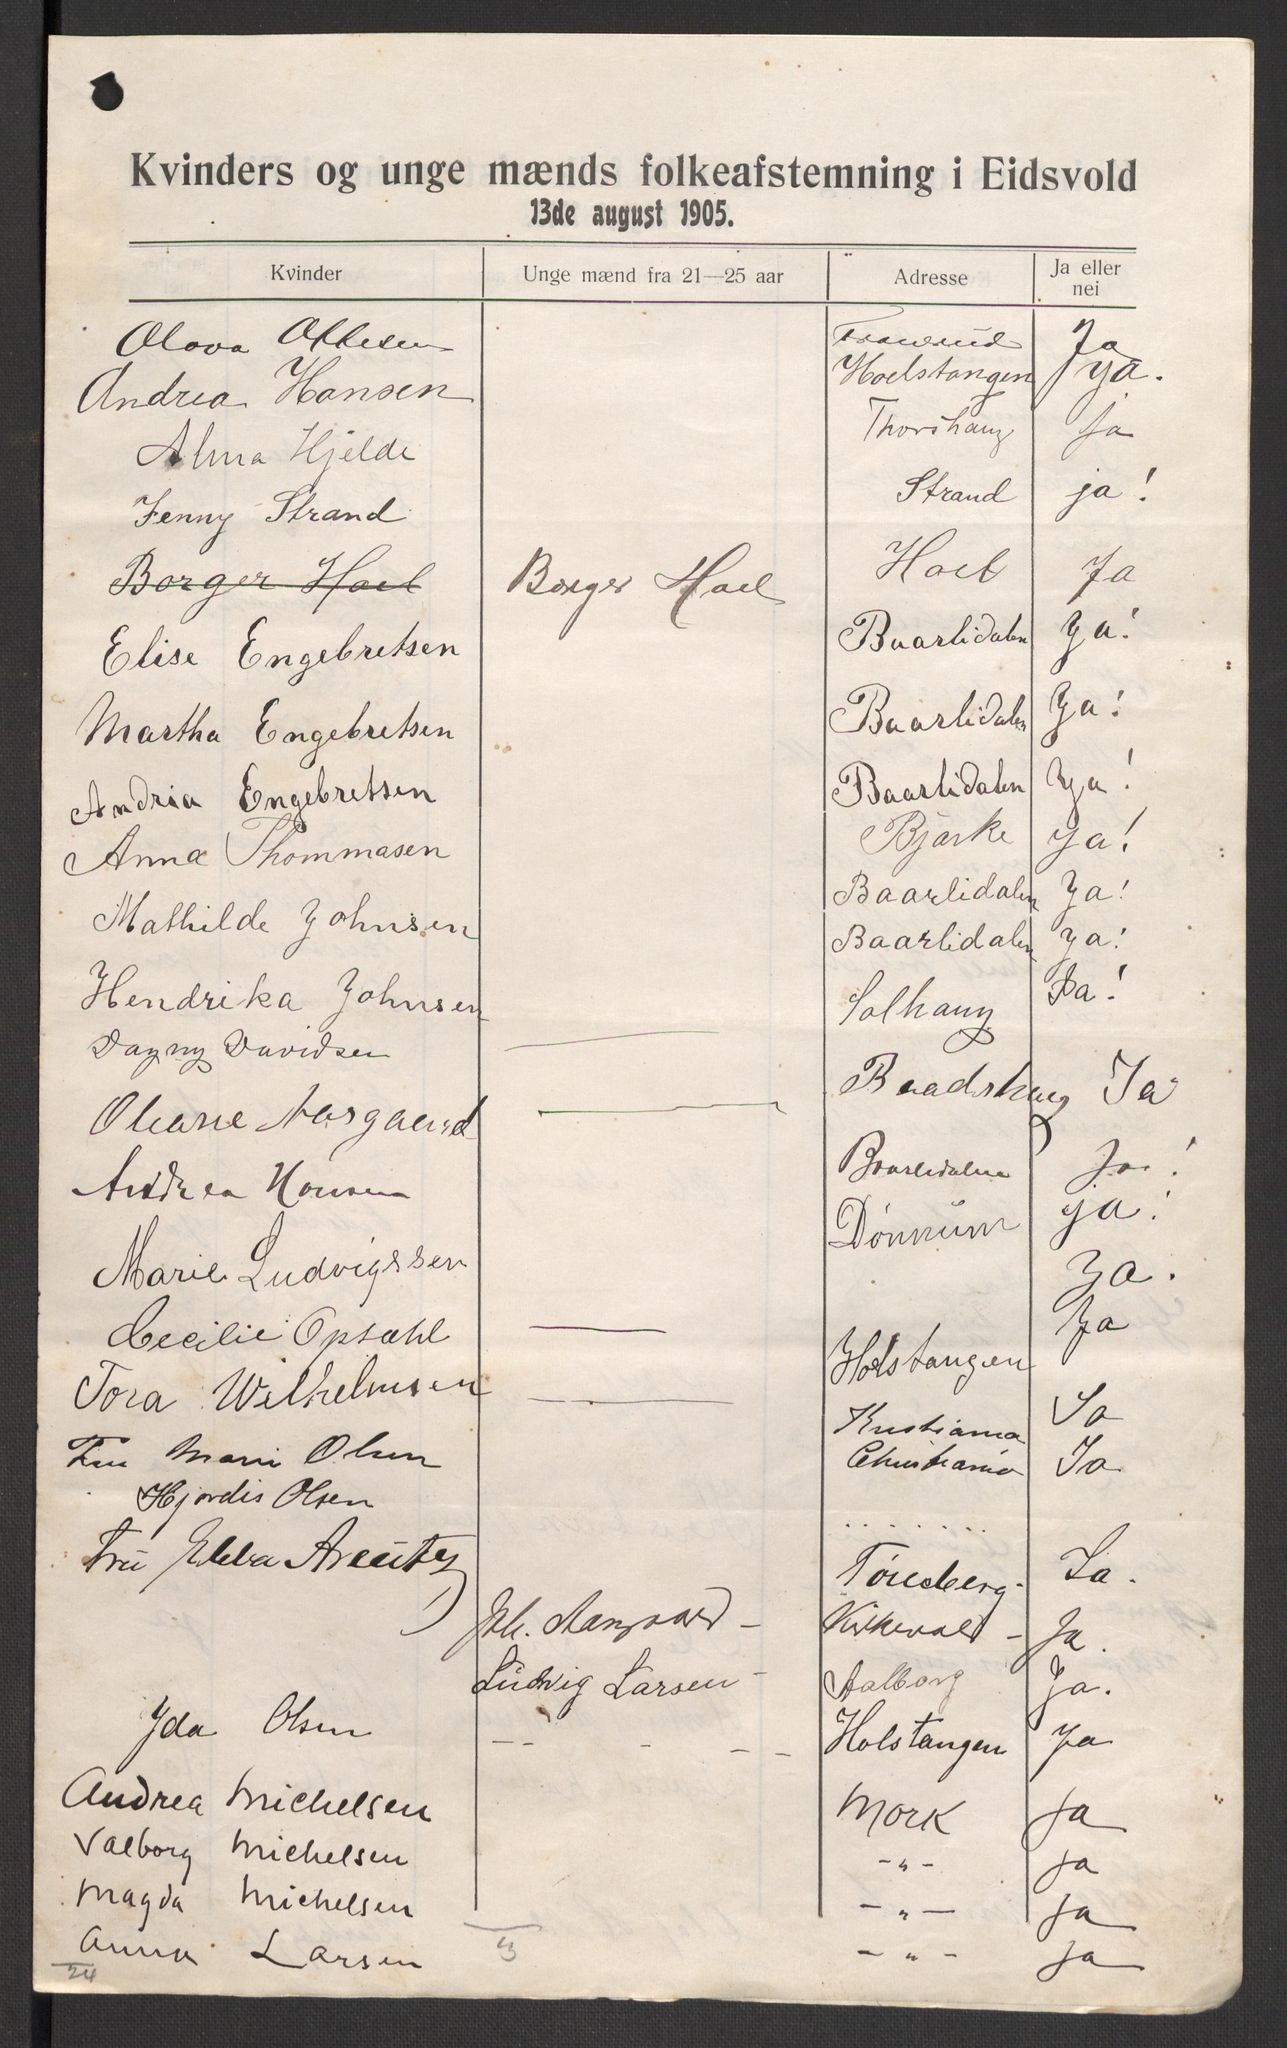 Kvinders og unge mænds folkeafstemning i Eidsvold
13de august 1905.
Kvinder Unge mænd fra 21—25 aar Adresse Ja eller nei
Olava Ottesen Ja
Andrea Hansen Hoelstangen ja.
Alma Hjelde Thorshaug Ja
Jenny Strand Strand ja!
Borger Hoel Borger Hoel Hoel Ja
Elise Engebretsen Baarlidalen Ja!
Martha Engebretsen Baarlidalen Ja!
Andria Engebretsen Baarlidalen Ja!
Anna Thommasen Bjørke Ja!
Mathilde Johnsen Baarlidalen Ja!
Hendrika Johnsen Baarlidalen Ja!
Dagny Davidsen Solhaug Ja!
Oleane Aasgaard Baadshaug Ja
Andrea Hansen Baarlidalen Ja!
Marie Ludvigssen Dønnum ja!
Cecilie Opsahl Ja.
Tora Wilhelmsen Holstangen Ja
Fru Marie Olsen Kristiania Ja
Hjørdis Olsen Christiania Ja
Fru Ebba Arentz Tønsberg. Ja.
Joh. Aasgaard – Kirkevold – Ja.
Ludvig Larsen – Aalborg Ja.
Ida Olsen Holstangen Ja
Andrea Michelsen Mork Ja
Valborg Michelsen -"- Ja
Magda Michelsen -"- Ja
Anna Larsen -"- Ja
24 3